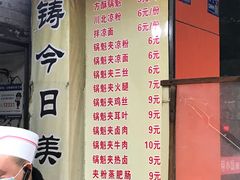 铸今日美
方酥锅魁 6元/
川北凉粉 6元/份
拌凉面 6元/份
锅魁夹凉粉 6元
锅魁夹凉面 6元
锅魁夹三丝 6元
锅魁夹火腿 7元
锅魁夹鸡丝 9元
锅魁夹耳叶 9元
锅魁夹卤肉 9元
锅魁夹牛肉 10元
锅魁夹热卤 9元
夹粉蒸肥肠 9元